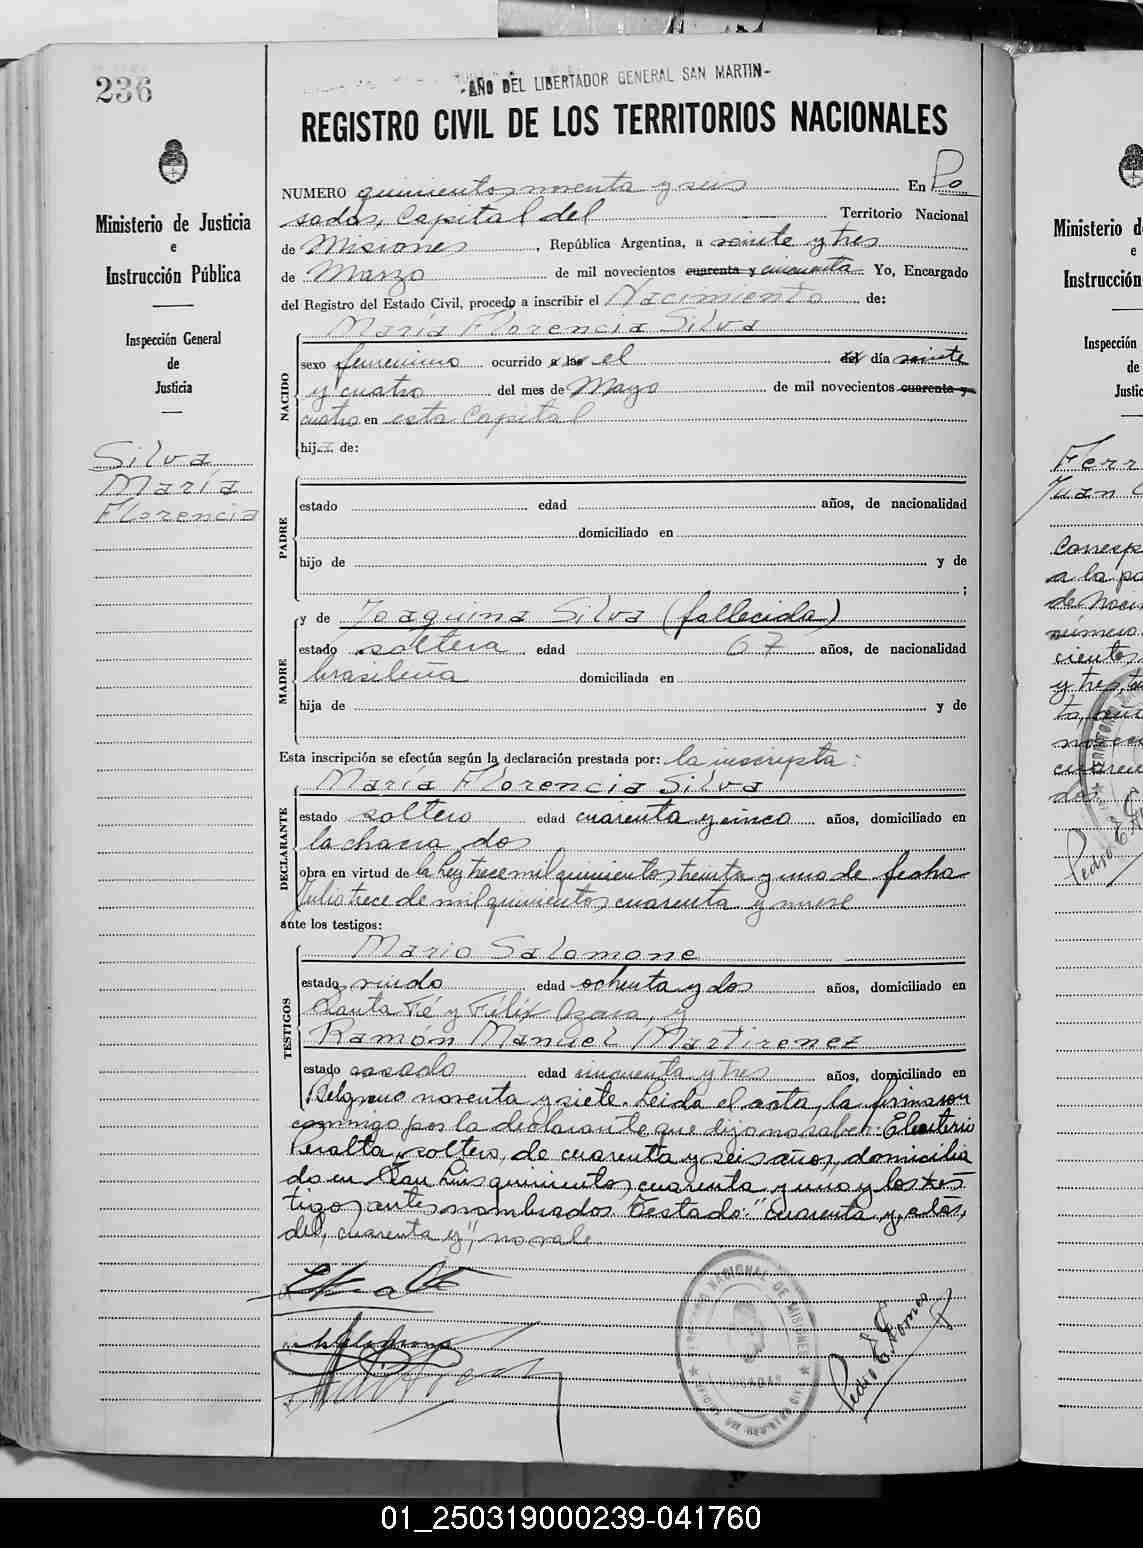 236
-AÑO DEL LIBERTADOR GENERAL SAN MARTIN-
REGISTRO CIVIL DE LOS TERRITORIOS NACIONALES
Ministerio de Justicia
e
Instrucción Pública
Inspección General
de
Justicia
Silva
María
Florencia
NUMERO quinientos noventa y seis En Po
sadas, Capital del Territorio Nacional
de Misiones, República Argentina, a veinte y tres
de Marzo de mil novecientos cuarenta y cincuenta. Yo, Encargado
del Registro del Estado Civil, procedo a inscribir el Nacimiento de:
María Florencia Silva
NACIDO
sexo femenino ocurrido a las el del día veinte
y cuatro del mes de Mayo de mil novecientos cuarenta y
cuatro en esta Capital
hij de:
PADRE
estado edad años, de nacionalidad
domiciliado en
hijo de y de
;
MADRE
y de Joaquina Silva (fallecida)
estado soltera edad 67 años, de nacionalidad
brasileña domiciliada en
hija de y de
Esta inscripción se efectúa según la declaración prestada por: la inscripta:
María Florencia Silva
DECLARANTE
estado soltera edad cuarenta y cinco años, domiciliado en
la chacra dos
obra en virtud de la Ley trece mil quinientos treinta y uno de fecha
Julio trece de mil quinientos cuarenta y nueve
ante los testigos:
TESTIGOS
Mario Salomone
estado viudo edad ochenta y dos años, domiciliado en
Santa Fé y Félix Azara, y
Ramón Manuel Martirenez
estado casado edad cincuenta y tres años, domiciliado en
Belgrano noventa y siete. Leída el acta, la firmaron
conmigo por la declarante que dijo no saber: Eleuterio
Peralta, soltero, de cuarenta y seis años, domicilia
do en San Luis quinientos cuarenta y uno y los tes
tigos antes nombrados. Testado: "cuarenta y, a las,
del, cuarenta y", no vale.
NACIONAL DE MISIONES
POSADAS
Pedro E. Gomes
Ministerio d
e
Instrucción
Inspección
de
Justic
Ferr
Juan C
Corresp
a la pa
de Naci
número
cientos
y tres, to
ta, año
nove
cuaren
dos
TERRITORIO
Pedro E. G
01_250319000239-041760